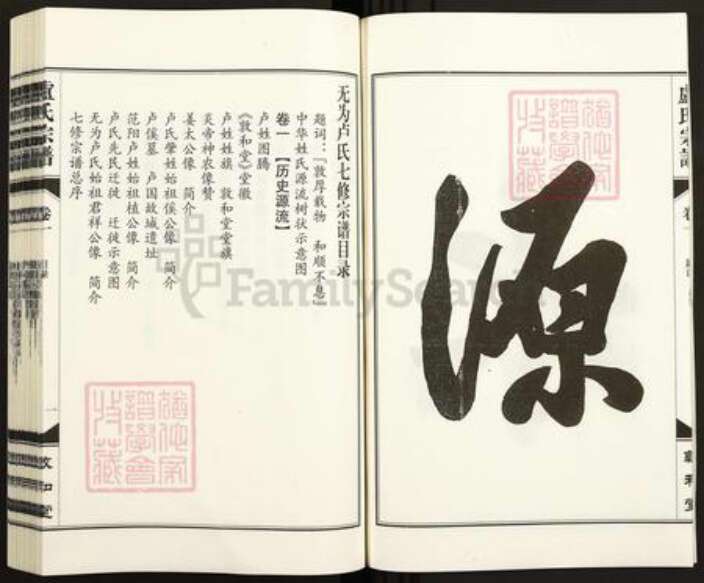 源
盧氏宗譜
卷一
敦和堂
无为卢氏七修宗谱目录
题词：「敦厚载物 和顺不息」
中华姓氏源流树状示意图
卷一【历史源流】
卢姓图腾
《敦和堂》堂徽
卢姓姓旗 敦和堂堂旗
炎帝神农像赞
姜太公像 简介
卢氏肇姓始祖傒公像 简介
卢傒墓 卢国故城遗址
范阳卢姓始祖植公像 简介
卢氏先民迁徙 迁徙示意图
无为卢氏始祖君祥公像 简介
七修宗谱总序
盧氏宗譜
卷一
目录
一
敦和堂
FamilySearch